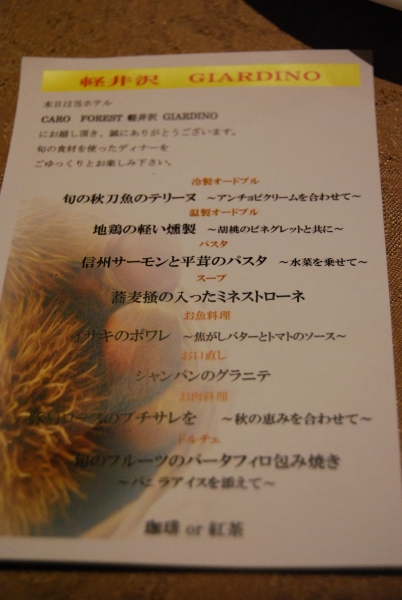 軽井沢 GIARDINO
本日は当ホテル
CARO FOREST 軽井沢 GIARDINO
にお越し頂き、誠にありがとうございます。
旬の食材を使ったディナーを
ごゆっくりとお楽しみ下さい。
冷製オードブル
旬の秋刀魚のテリーヌ ～アンチョビクリームを合わせて～
温製オードブル
地鶏の軽い燻製 ～胡桃のビネグレットと共に～
パスタ
信州サーモンと平茸のパスタ ～水菜を乗せて～
スープ
蕎麦掻の入ったミネストローネ
お魚料理
イサキのポワレ ～焦がしバターとトマトのソース～
お口直し
シャンパンのグラニテ
お肉料理
ロースのプチサレを ～秋の恵みを合わせて～
ドルチェ
旬のフルーツのパータフィロ包み焼き
～バニラアイスを添えて～
珈琲 or 紅茶